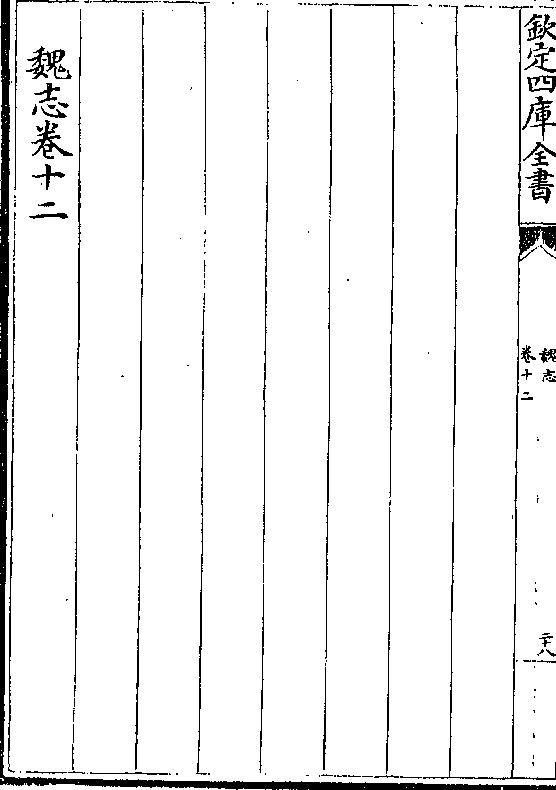 欽定四庫全書
魏志
卷十二
二十八
魏志卷十二